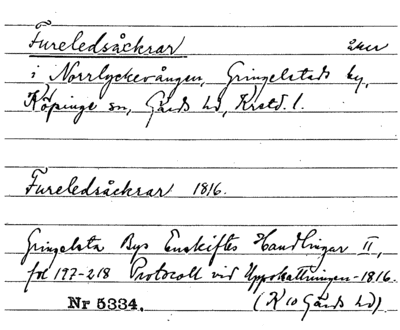 Fureledsåckrar åker
i Norrlyckevången, Gringelstads by,
Köpinge sn, Gärds hd, Krstd. l.
Fureledsåckrar 1816.
Gringelsta Bys Enskiftes Handlingar II,
fol 197-218 Protocoll vid Uppskattningen - 1816.
Nr 5334. (K 10 Gärds hd)